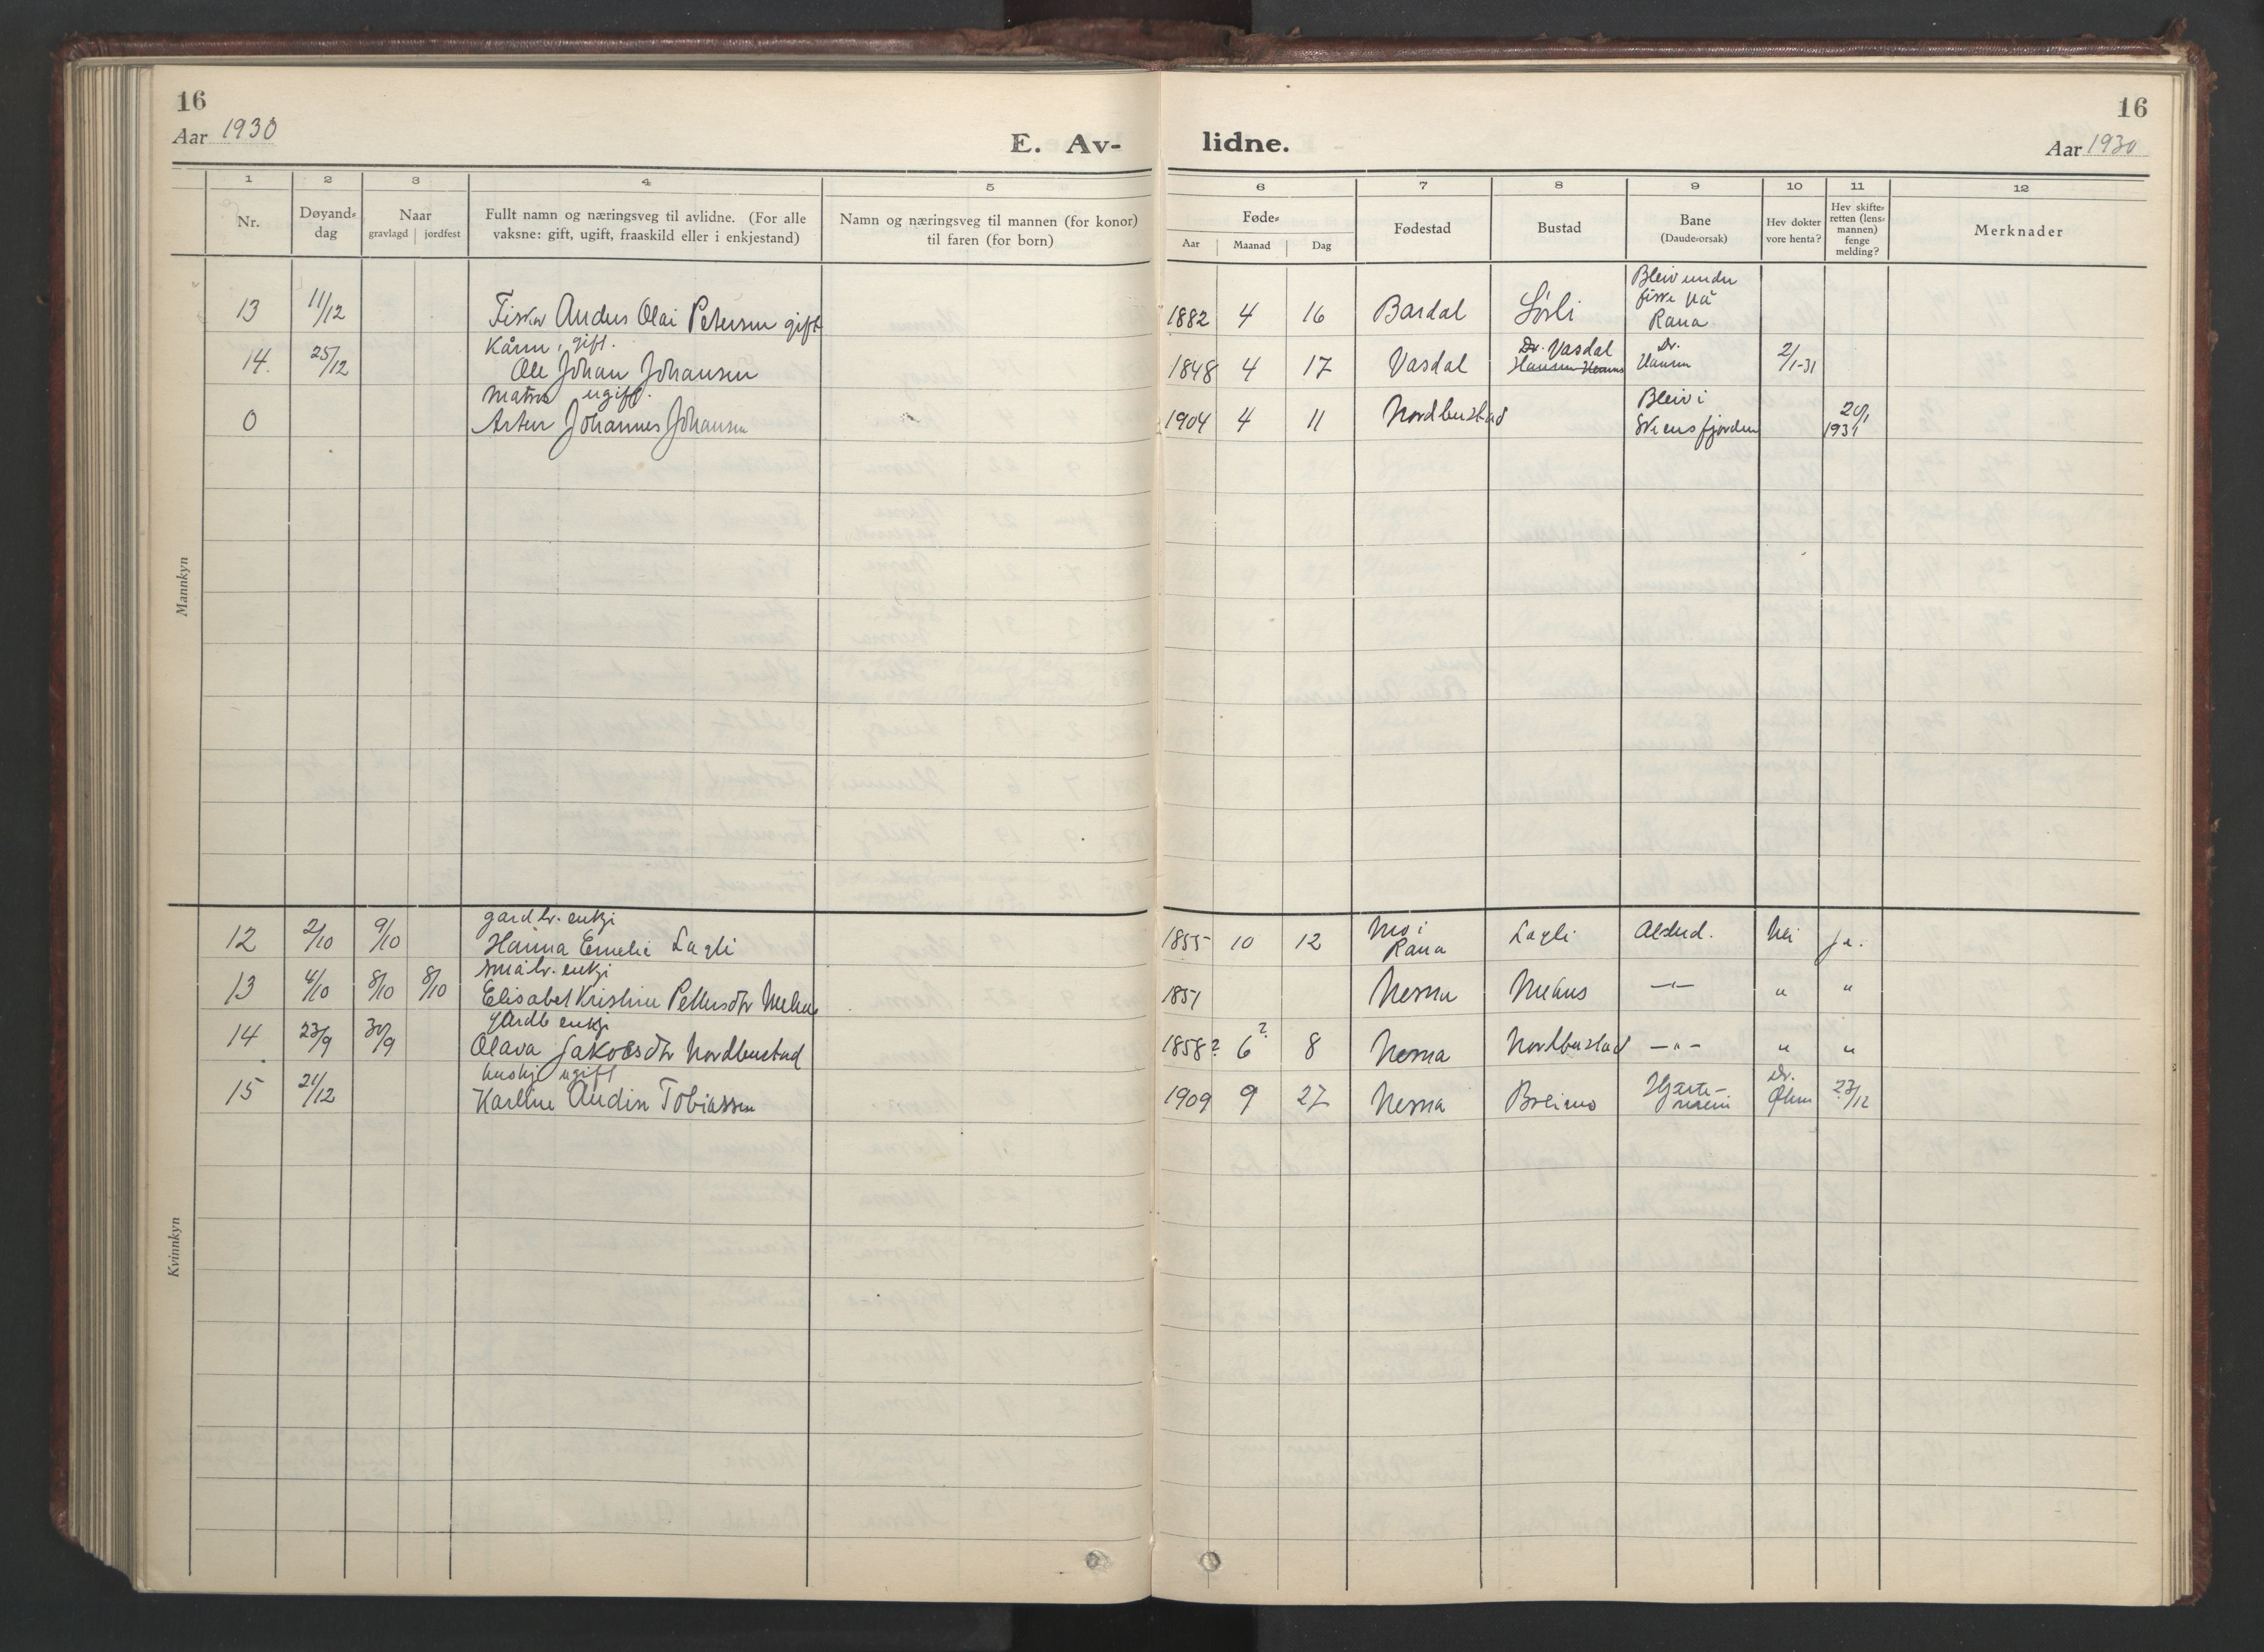 16
Aar 1930
E. Av-
lidne.
16
Aar 1930
1 2 3 4 5 6 7 8 9 10 11 12
Nr.
Døyand-
dag
Naar
gravlagd | jordfest
Fullt namn og næringsveg til avlidne. (For alle
vaksne: gift, ugift, fraaskild eller i enkjestand)
Namn og næringsveg til mannen (for konor)
til faren (for born)
Føde-
Aar Maanad Dag
Fødestad
Bustad
Bane
(Daude-orsak)
Hev dokter
vore henta?
Hev skifte-
retten (lens-
mannen)
fenge
melding?
Merknader
Mannkyn
13 11/12 Fisker Anders Olai Petersen gift 1882 4 16 Bardal Sørli
Bleiv under
fiske på
Rana
14. 25/12
Kårm, gift.
Ole Johan Johansen 1848 4 17 Vasdal
Dr. Vasdal
Dr.
Hansen
2/1-31
0
Matros ugift.
Artur Johannes Johansen 1904 4 11 Nordbustad
Bleiv i
Skiensfjorden
20/1
1931
Kvinnkyn
12 2/10 9/10
gardbr. enkje
Hanna Emelie Lagli 1855 10 12
Mo i
Rana
Lagli Alderd. Nei ja.
13 4/10 8/10 8/10
småbr. enkje
Elisabet Kristine Pettersdtr 1851 Nesna —"— " "
14 23/9 30/9
gardb enkje
Olava Jakobsdtr Nordbustad 1858? 6? 8 Nesna Nordbustad —"— " "
15 21/12
hushj ugift
Karline Andin Tobiassen 1909 9 27 Nesna Breimo
Hjarte-
Dr.
Øhm
23/12